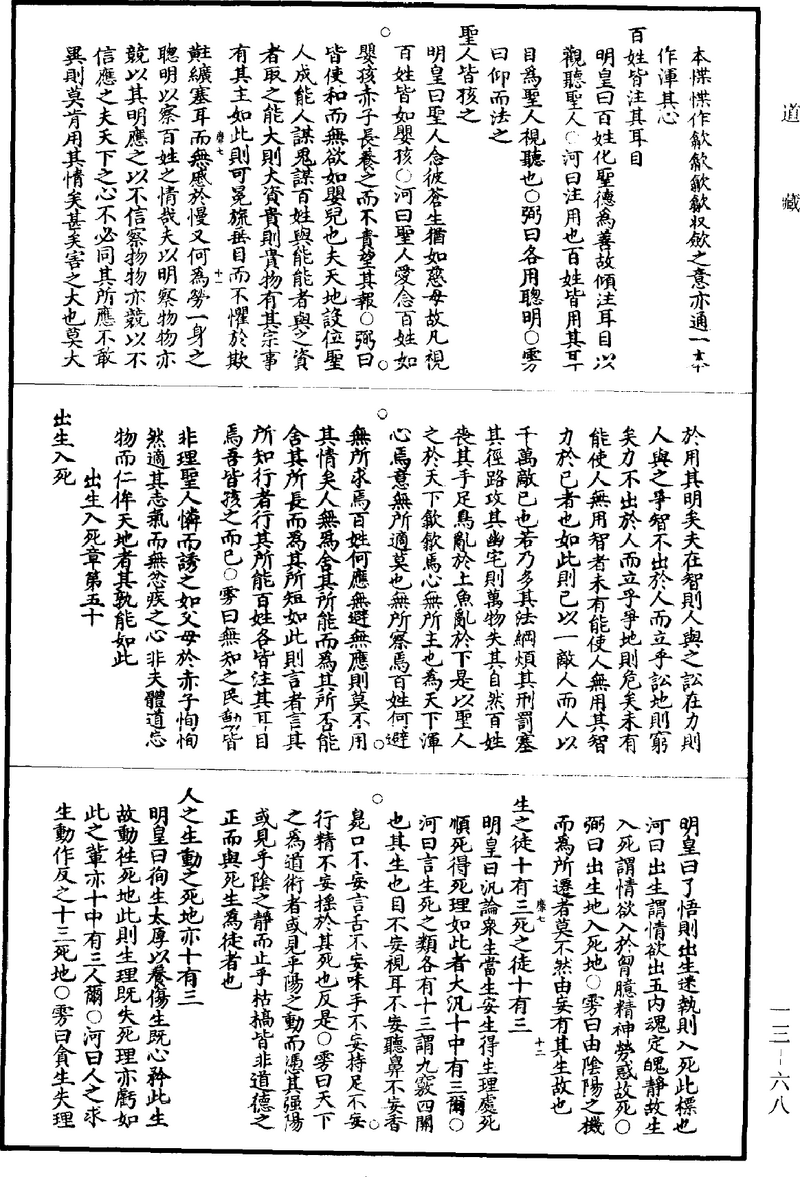 道藏
本惵惵作歙歙歙歙収斂之意亦通一本
作渾其心
百姓皆注其耳目
明皇曰百姓化聖德為善故傾注耳目以
觀聽聖人○河曰注用也百姓皆用其耳
目為聖人視聽也○弼曰各用聰明○雱
曰仰而法之
聖人皆孩之
明皇曰聖人念彼蒼生猶如慈母故凡視
百姓皆如嬰孩○河曰聖人愛念百姓如
嬰孩赤子長養之而不責望其報○弼曰
皆使和而無欲如嬰兒也夫天地設位聖
人成能人謀鬼謀百姓與能能者與之資
者取之能大則大資貴則貴物有其宗事
有其主如此則可冕旒垂目而不懼於欺
黈纊塞耳而無慼於慢又何為勞一身之
聰明以察百姓之情哉夫以明察物物亦
競以其明應之以不信察物物亦競以不
信應之夫天下之心不必同其所應不敢
異則莫肯用其情矣甚矣害之大也莫大
於用其明矣夫在智則人與之訟在力則
人與之爭智不出於人而立乎訟地則窮
矣力不出於人而立乎爭地則危矣未有
能使人無用智者未有能使人無用其智
力於己者也如此則己以一敵人而人以
千萬敵己也若乃多其法綱煩其刑罰塞
其徑路攻其幽宅則萬物失其自然百姓
喪其手足鳥亂於上魚亂於下是以聖人
之於天下歙歙焉心無所主也為天下渾
心焉意無所適莫也無所察焉百姓何避
無所求焉百姓何應無避無應則莫不用
其情矣人無為舍其所能而為其所否能
舍其所長而為其所短如此則言者言其
所知行者行其所能百姓各皆注其耳目
焉吾皆孩之而已○雱曰無知之民動皆
非理聖人憐而誘之如父母於赤子恂恂
然適其志氣而無忽疾之心非夫體道忘
物而仁侔天地者其孰能如此
出生入死章第五十
出生入死
明皇曰了悟則出生迷執則入死此標也
河曰出生謂情欲出五内魂定魄靜故生
入死謂情欲入於胷臆精神勞惑故死○
弼曰出生地入死地○雱曰由陰陽之機
而為所遷者莫不然由妄有其生故也
生之徒十有三死之徒十有三
明皇曰汎論衆生當生安生得生理處死
順死得死理如此者大汎十中有三爾○
河曰言生死之類各有十三謂九竅四關
也其生也目不妄視耳不妄聽鼻不妄香
臭口不妄言舌不妄味手不妄持足不妄
行精不妄搖於其死也反是○雱曰天下
之為道術者或見乎陽之動而憑其强陽
或見乎陰之靜而止乎枯槁皆非道德之
正而與死生為徒者也
人之生動之死地亦十有三
明皇曰徇生太厚以養傷生既心矜此生
故動徃死地此則生理既失死理亦虧如
此之輩亦十中有三人爾○河曰人之求
生動作反之十三死地○雱曰貪生失理
一三－六八